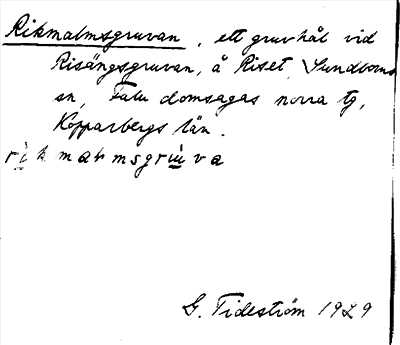 Rikmalmsgruvan, ett gruvhål vid
Risängsgruvan, å Riset, Sundborns
sn, Falu domsagas norra tg,
Kopparbergs län.
rikmalmsgruva
G. Tideström 1929